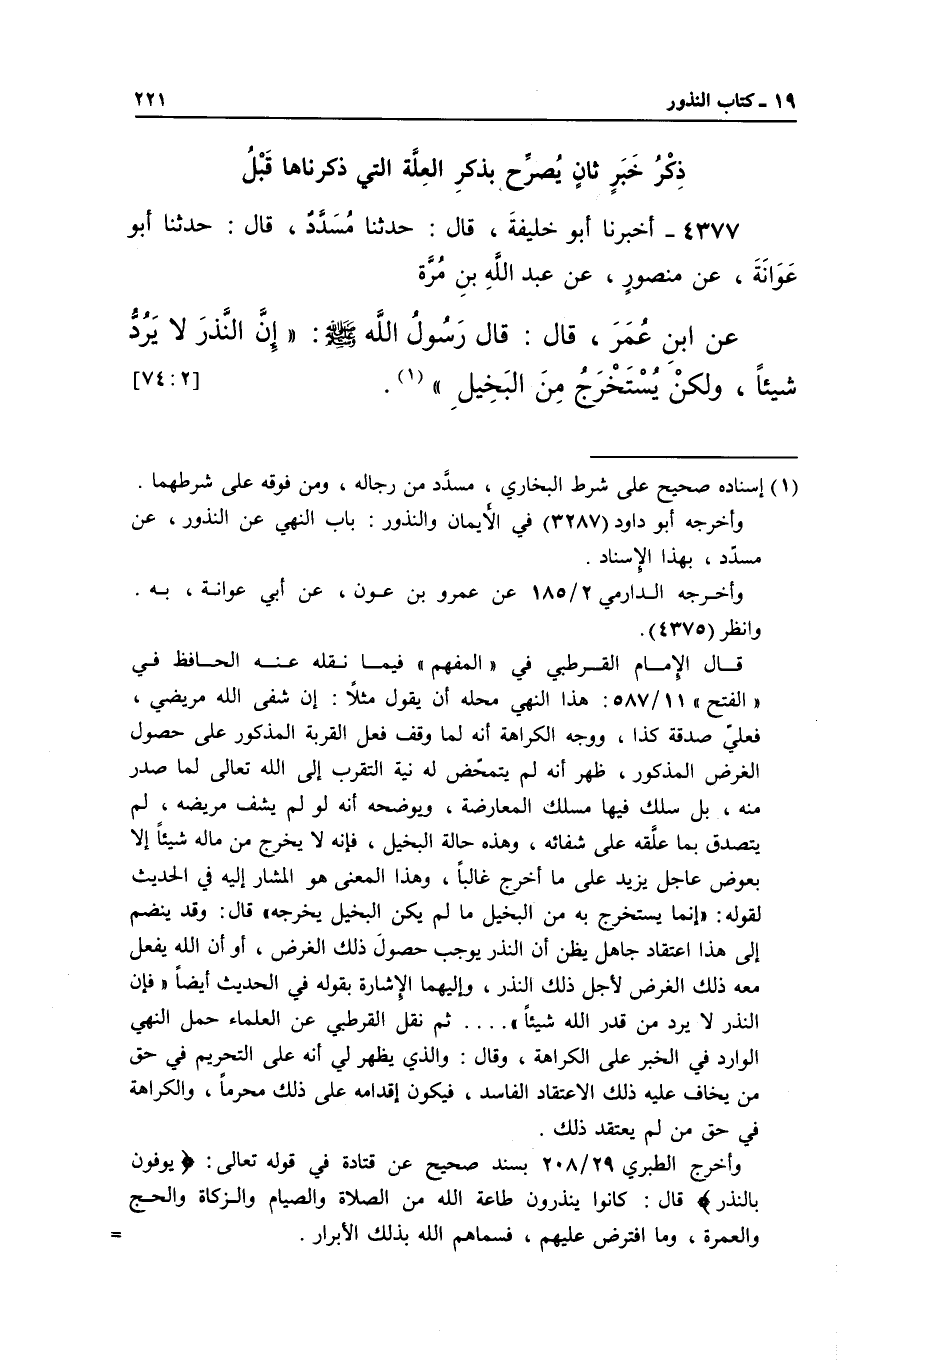 ١٩ ـ كتاب النذور ٢٢١
ذِكْرُ خَبَرٍ ثانٍ يُصرِّح بذكرِ العِلَّة التي ذكرناها قَبْلُ
٤٣٧٧ ـ أخبرنا أبو خليفةَ ، قال : حدثنا مُسَدَّدٌ ، قال : حدثنا أبو
عَوَانَةَ ، عن منصورٍ ، عن عبد اللَّهِ بنِ مُرَّة
عن ابنِ عُمَرَ ، قال : قال رَسُولُ اللَّه ﷺ : « إِنَّ النَّذرَ لا يَرُدُّ
شيئاً ، ولكنْ يُسْتَخْرَجُ مِنَ البَخِيلِ » (١) . [٢ : ٧٤]
(١) إسناده صحيح على شرط البخاري ، مسدَّد من رجاله ، ومن فوقه على شرطهما .
وأخرجه أبو داود (٣٢٨٧) في الأيمان والنذور : باب النهي عن النذور ، عن
مسدّد ، بهذا الإسناد .
وأخرجه الدارمي ١٨٥/٢ عن عمرو بن عون ، عن أبي عوانة ، به .
وانظر (٤٣٧٥).
قال الإمام القرطبي في « المفهم » فيما نقله عنه الحافظ في
« الفتح » ٥٨٧/١١: هذا النهي محله أن يقول مثلاً : إن شفى الله مريضي ،
فعليّ صدقة كذا ، ووجه الكراهة أنه لما وقف فعل القربة المذكور على حصول
الغرض المذكور ، ظهر أنه لم يتمحّض له نية التقرب إلى الله تعالى لما صدر
منه ، بل سلك فيها مسلك المعارضة ، ويوضحه أنه لو لم يشف مريضه ، لم
يتصدق بما علَّقه على شفائه ، وهذه حالة البخيل ، فإنه لا يخرج من ماله شيئاً إلا
بعوض عاجل يزيد على ما أخرج غالباً ، وهذا المعنى هو المشار إليه في الحديث
لقوله: «إنما يستخرج به من البخيل ما لم يكن البخيل يخرجه» قال: وقد ينضم
إلى هذا اعتقاد جاهل يظن أن النذر يوجب حصولَ ذلك الغرض ، أو أن الله يفعل
معه ذلك الغرض لأجل ذلك النذر ، وإليهما الإشارة بقوله في الحديث أيضاً « فإن
النذر لا يرد من قدر الله شيئاً ».... ثم نقل القرطبي عن العلماء حمل النهي
الوارد في الخبر على الكراهة ، وقال : والذي يظهر لي أنه على التحريم في حق
من يخاف عليه ذلك الاعتقاد الفاسد ، فيكون إقدامه على ذلك محرماً ، والكراهة
في حق من لم يعتقد ذلك .
وأخرج الطبري ٢٠٨/٢٩ بسند صحيح عن قتادة في قوله تعالى: ﴿ يوفون
بالنذر ﴾ قال : كانوا ينذرون طاعة الله من الصلاة والصيام والزكاة والحج
والعمرة ، وما افترض عليهم ، فسماهم الله بذلك الأبرار . =